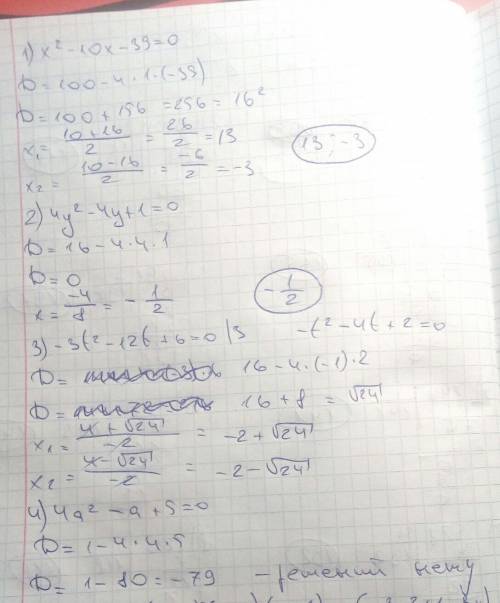 1) x² - 10x - 39 = 0
D = 100 - 4 · 1 · (-39)
D = 100 + 156 = 256 = 16²
x₁ = \frac{10+16}{2} = \frac{26}{2} = 13
13 ; -3
x₂ = \frac{10-16}{2} = \frac{-6}{2} = -3
2) 4y² - 4y + 1 = 0
D = 16 - 4 · 4 · 1
D = 0
x = \frac{-4}{8} = -\frac{1}{2}
-\frac{1}{2}
3) -3t² - 12t + 6 = 0 |3   -t² - 4t + 2 = 0
D = 16 - 4 · (-1) · 2
D = 16 + 8 = √24
x₁ = \frac{4 + √24}{-2} = -2 + √24
x₂ = \frac{4 - √24}{-2} = -2 - √24
4) 4a² - a + 5 = 0
D = 1 - 4 · 4 · 5
D = 1 - 80 = -79 - решений нету